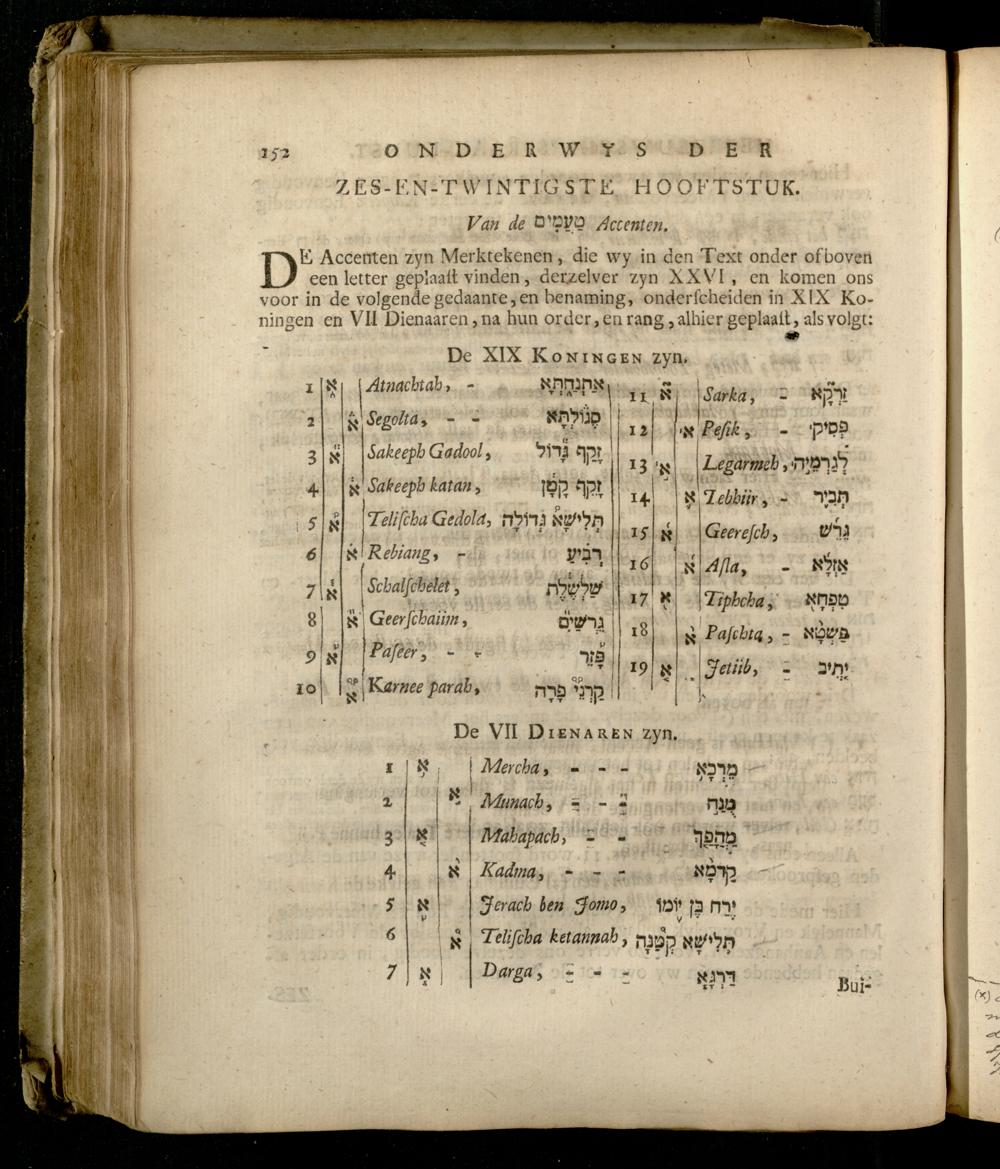 152 ONDERWYS DER
ZES-EN-TWINTIGSTE HOOFTSTUK.
Van de טַעֲמִים Accenten.
DE Accenten zyn Merktekenen, die wy in den Text onder of boven
een letter geplaaſt vinden, derzelver zyn XXVI, en komen ons
voor in de volgende gedaante, en benaming, onderſcheiden in XIX Ko-
ningen en VII Dienaaren, na hun order, en rang, alhier geplaaſt, als volgt:
De XIX KONINGEN zyn.
1 א֑ Atnachtah, - אַתְנַחְתָּא
2 א֒ Segolta, - - סְגוֹלְתָּא
3 א֕ Sakeeph Gadool, זָקֵף גָּדוֹל
4 א֔ Sakeeph katan, זָקֵף קָטָן
5 א֠ Teliſcha Gedola, תְּלִישָׁא גְדוֹלָה
6 א֗ Rebiang, - רְבִיעַ
7 א֓ Schalſchelet, שַׁלְשֶׁלֶת
8 א֞ Geerſchaiim, גֵרְשַׁיִם
9 א֡ Paſeer, - - פָּזֵר
10 א֟ Karnee parah, קַרְנֵי פָרָה
11 א֮ Sarka, - זַרְקָא
12 א׀ Peſik, - פְּסִיק׀
13 א֣׀ Legarmeh, לְגַרְמֵיהּ׀
14 א֛ Tebhiir, - תְּבִיר
15 א֜ Geereſch, גֵּרֵשׁ
16 א֨ Aſla, - אַזְלָא
17 א֖ Tiphcha, טִפְחָא
18 א֙ Paſchta, - פַּשְׁטָא
19 א֚ Jetiib, - יְתִיב
De VII DIENAREN zyn.
1 א֥ Mercha, - - - מֵרְכָא
2 א֣ Munach, - - - מֻנַח
3 א֤ Mahapach, - - מַהְפַּךְ
4 א֨ Kadma, - - - קַדְמָא
5 א֪ Jerach ben Jomo, יֶרַח בֶּן יוֹמוֹ
6 א֩ Teliſcha ketannah, תְּלִישָׁא קְטַנָּה
7 א֧ Darga, - - - דַּרְגָּא
Bui-